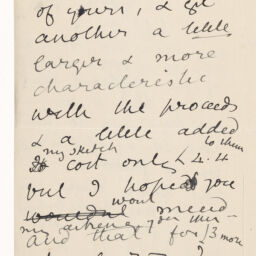 of yours, & get
another a little
larger & more
characteristic
with the proceeds
& a little added
to them
my sketch
cost only £4.4
but I hoped you
wont
wouldnt mind
my
And that for £3 more